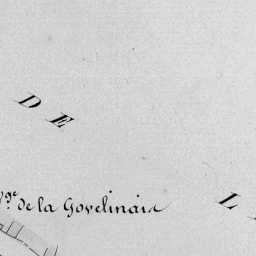 DE
Vge de la Govelinais
L